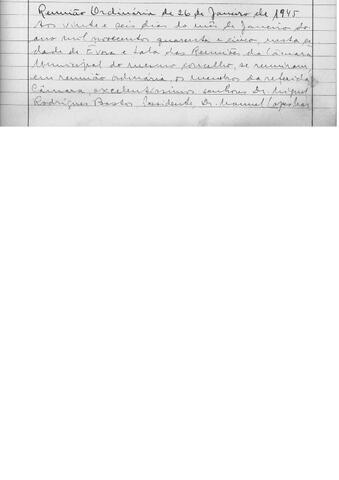 Reunião Ordinária de 26 de Janeiro de 1945
Aos vinte e seis dias do mês de Janeiro do
ano mil novecentos quarenta e cinco, nesta ci
dade de Evora e Sala das Reuniões da Câmara
Municipal do mesmo concelho, se reuniram,
em reunião ordinária, os membros da referida
Câmara, excelentíssimos senhores Dr. Miguel
Rodrigues Bastos Presidente Dr. Manuel Lopes